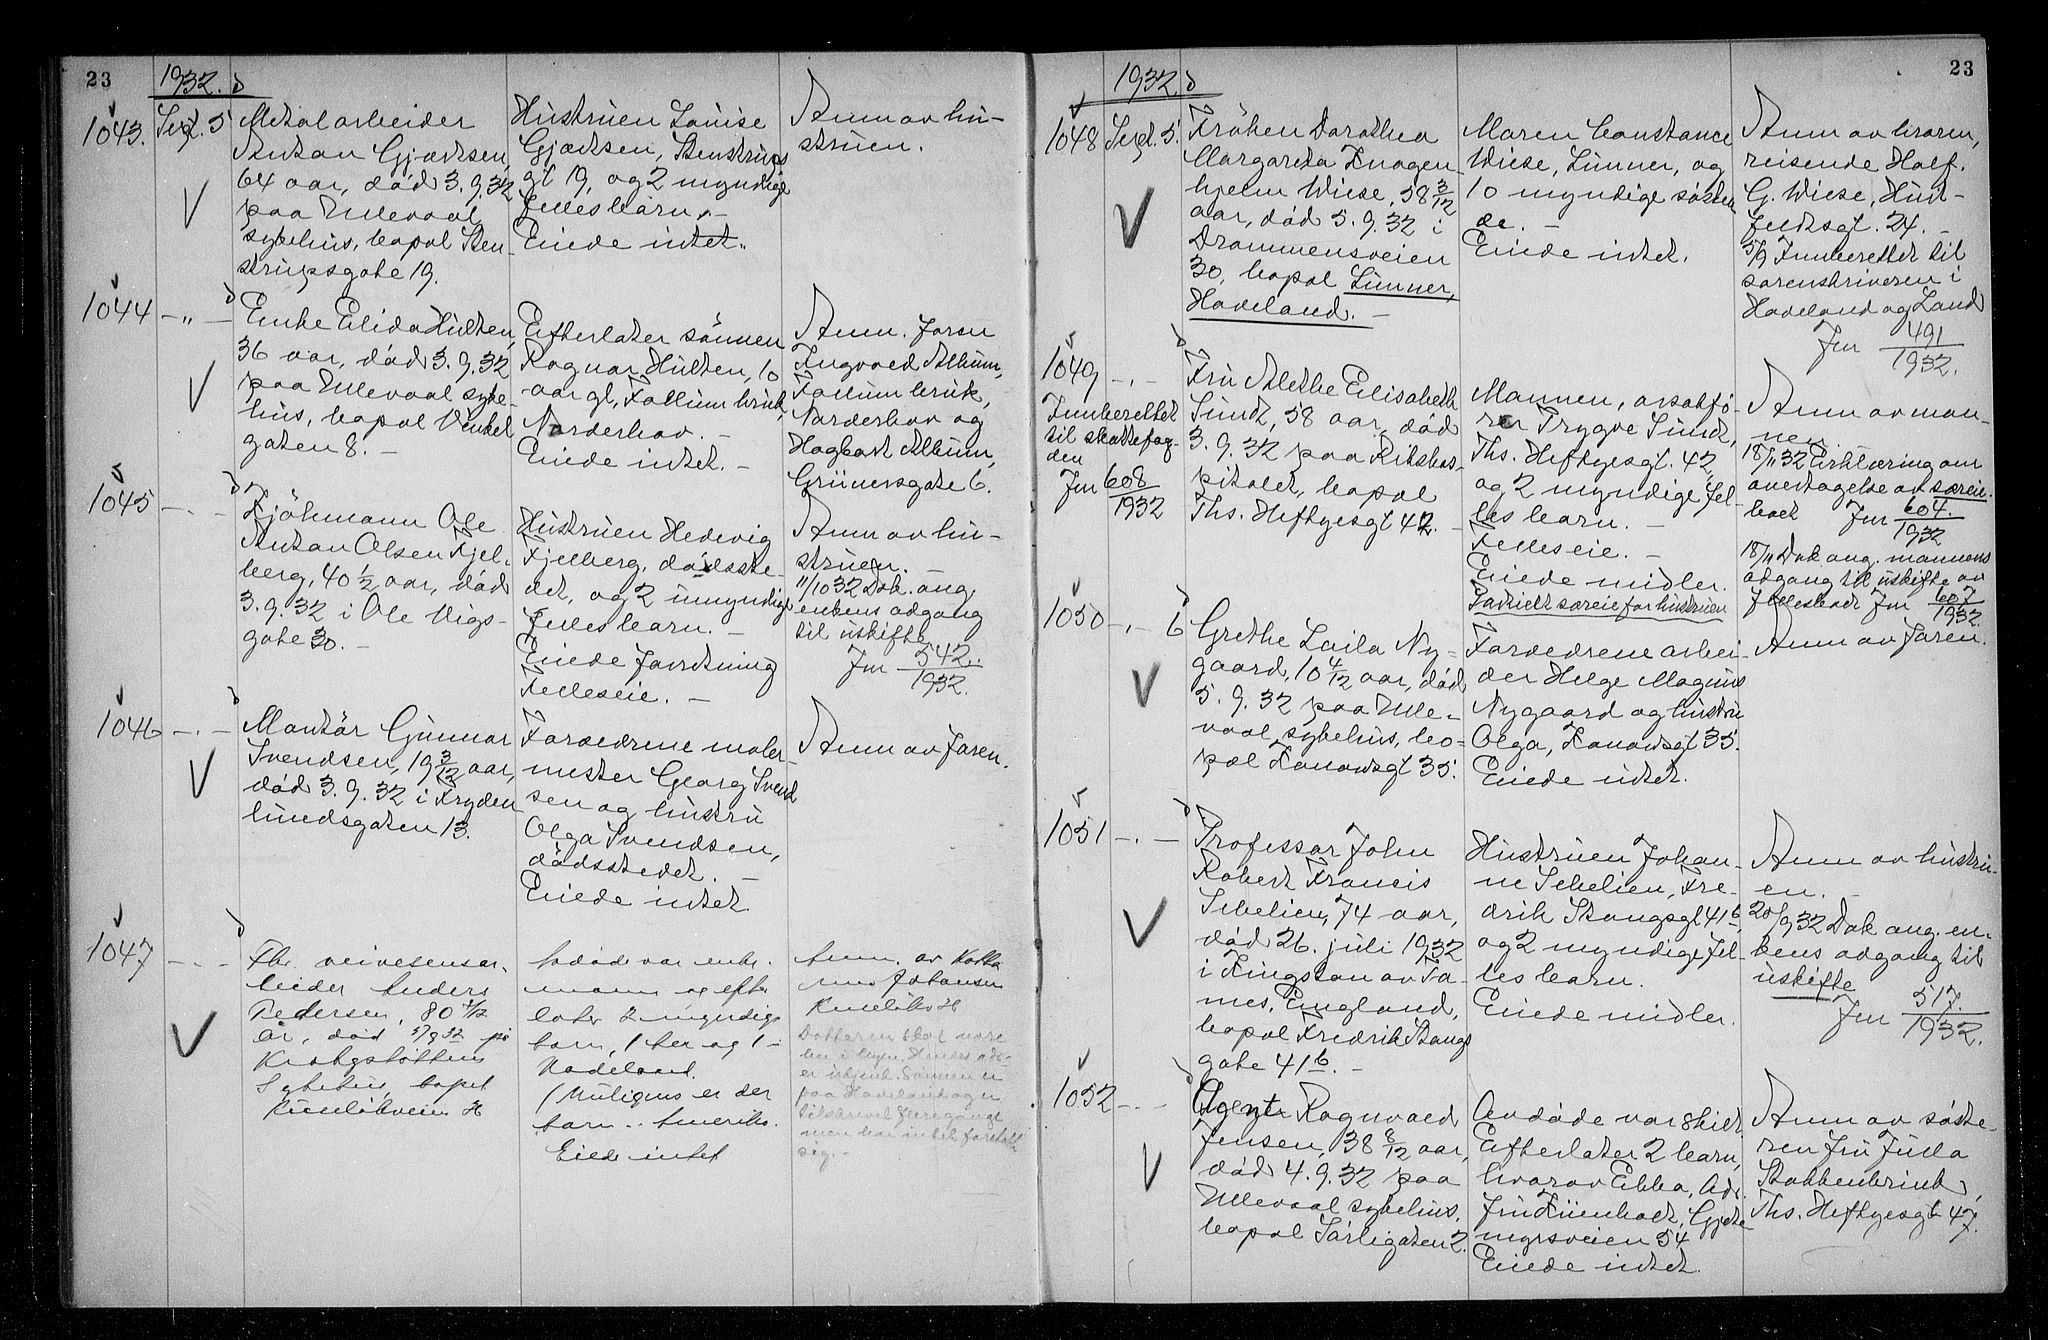 23
1932.
1043. Sept. 5
Metalarbeider
Anton Gjærtsen,
64 aar, död 3.9.32
paa Ullevaal
sykehus, bopæl Sten-
strupsgate 19.
Hustruen Louise
Gjærtsen, Stenstrups
gt 19, og 2 myndige
fælles barn. -
Eiede intet.
Anm av hu-
struen.
1044 - " -
Enke Elida Hulten,
36 aar, död 3.9.32
paa Ullevaal syke-
hus, bopæl Vinkel
gaten 8. -
Efterlater sönnen
Ragnar Hulten, 10
aar gl, Follum bruk,
Norderhov. -
Eiede intet. -
Anm. faren
Ingvald Album,
Follum bruk,
Norderhov og
Hagbart Album,
Grünersgate 6.
1045 - . -
Ole
Anton Olsen Fjel-
berg, 40 1/2 aar, död
3.9.32 i Ole Vigs-
gate 30. -
Hustruen Hedevig
Fjelberg, dödsste-
det, og 2 umyndige
fælles barn. -
Eiede forretning
Fælleseie. -
Anm av hu-
struen. -
11/10 32 Dok. ang.
enkens adgang
til uskifte
Jnr 542.
1932.
1046 - . -
Montör Gunnar
Svendsen, 19 3/12 aar,
död 3.9.32 i Fryden
lundsgaten 13.
Forældrene maler-
mester Georg Svend
sen og hustru
Olga Svendsen,
dödsstedet. -
Eiede intet.
Anm av faren.
1047 - . -
Fhv. veivesensar-
beider Anders
Pedersen, 80 /12
år, död 5/9 32 på
Krohgstöttens
Sykehus, bopæl
H
Avdöde var enke-
mann og efter-
later 2 myndige
barn, 1 her og 1 -
Hadeland.
(Muligens er der
barn i Amerika.
Eiede intet
Anm. av
Johansen
H
Datteren skal være
her i byen. Hendes adr.
er ukjent. Sönnen er
paa Hadeland og er
tilskrevet flere gange
men har intet foretatt
sig. -
23
1932
1048 Sept. 5.
Fröken Dorothea
Margareta Knagen-
hjelm Wiese, 58 3/12
aar, död 5.9.32 i
Drammensveien
30, bopæl Lunner,
Hadeland. -
Maren Constance
Wiese, Lunner, og
10 myndige sösken
de. -
Eiede intet.
Anm av broren,
reisende Half.
G. Wiese, Huit-
feldtsgt. 24. -
5/9 Innberettet til
sorenskriveren i
Hadeland og Land
Jnr 491
1932.
1049 - . -
Innberettet
til skattefog-
den
Jnr 608
1932
Fru Alethe Elisabeth
Sundt, 58 aar, död
3.9.32 paa Rikshos-
pitalet, bopæl
Ths. Heftyesgt 42. -
Mannen, o.r.sakfö-
rer Trygve Sundt,
Ths. Heftyesgt. 42,
og 2 myndige fæl-
les barn. -
Fælleseie. -
Eiede midler.
særeie for hustruen
Anm av man-
nen.
18/11 32 Erklæring om
overtagelse av særeie-
boet Jnr 604.
1932
18/11 Dok ang. mannens
adgang til uskifte av
fællesboet Jnr 607
1932.
1050 - . - 6
Grethe Laila Ny-
gaard, 10 4/12 aar, död
5.9.32 paa Ulle-
vaal sykehus, bo-
pæl Fanowsgt 35.
Forældrene arbei-
der Helge Magnus
Nygaard og hustru
Olga, Fanowsgt 35.
Eiede intet.
Anm av faren.
1051 - . -
Professor John
Robert Francis
Sebelien, 74 aar,
död 26. juli 1932
i Kingston av Ta-
mes, England,
bopæl Fredrik Stangs
gate 41 b. -
Hustruen Johan-
ne Sebelien, Fre-
drik Stangsgt 41 b,
og 2 myndige fæl-
les barn.
Eiede midler.
Anm av hustru-
en. -
20/9 32 Dok ang. en-
kens adgang til
uskifte
Jnr 517.
1932.
1052 - . -
Agent Ragnvald
Jensen, 38 8/12 aar,
död 4.9.32 paa
Ullevaal sykehus,
bopæl Sörligaten 2.
Avdöde var skilt.
Efterlater 2 barn,
hvorav Ebba, Adr.
fru Gjete
myrsveien 54
Eiede intet.
Anm av söste-
ren fru Julla
Stokkenbrink,
Ths. Heftyesgt 47.